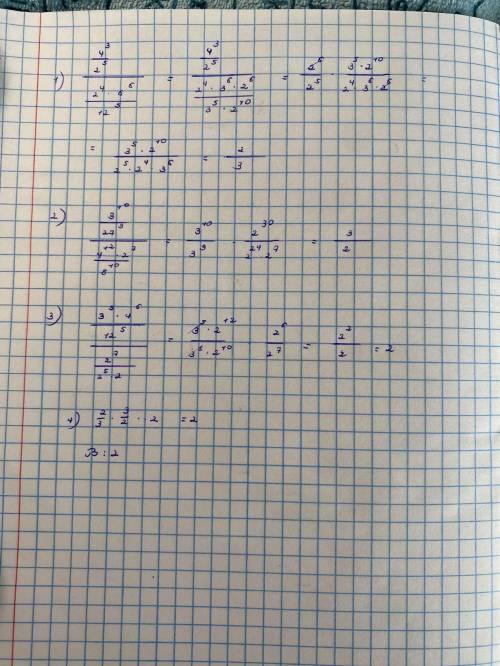 1) \frac{\frac{4^3}{2^5}}{\frac{2^4 \cdot 6^6}{12^5}} = \frac{\frac{4^3}{2^5}}{\frac{2^4 \cdot 3^6 \cdot 2^6}{3^5 \cdot 2^{10}}} = \frac{2^6}{2^5} \cdot \frac{3^5 \cdot 2^{10}}{2^4 \cdot 3^6 \cdot 2^6} =
= \frac{3^5 \cdot 2^{10}}{2^5 \cdot 2^4 \cdot 3^6} = \frac{2}{3}
2) \frac{\frac{3^{10}}{27^3}}{\frac{4^{12} \cdot 2^7}{8^{10}}} = \frac{3^{10}}{3^9} \cdot \frac{2^{30}}{2^{24} \cdot 2^7} = \frac{3}{2}
3) \frac{\frac{3^5 \cdot 4^6}{12^5}}{\frac{2^7}{2^5 \cdot 2}} = \frac{3^5 \cdot 2^{12}}{3^5 \cdot 2^{10}} \cdot \frac{2^6}{2^7} = \frac{2^2}{2} = 2
4) \frac{2}{3} \cdot \frac{3}{2} \cdot 2 = 2
В: 2